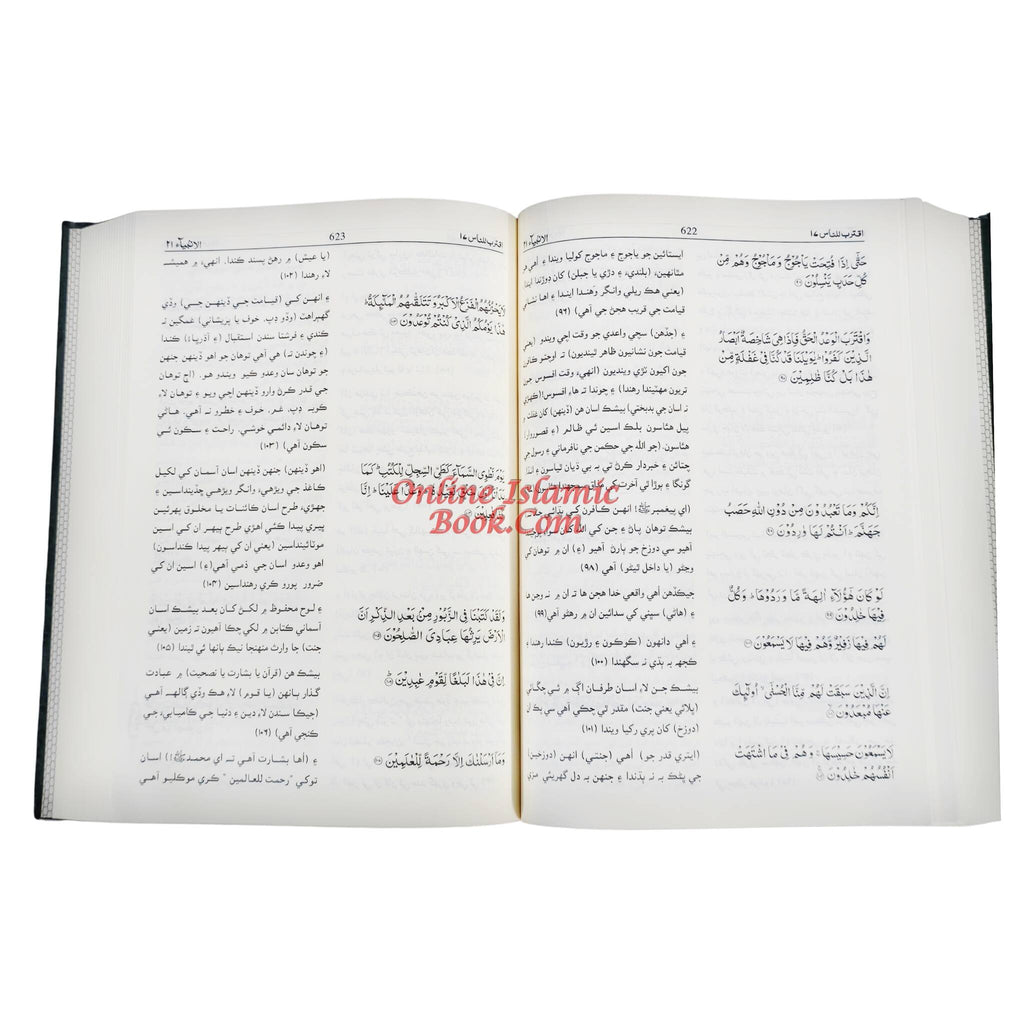 اقترب للناس ١٧
622
الانبياء ٢١
حَتّٰۤى اِذَا فُتِحَتْ يَاْجُوْجُ وَمَاْجُوْجُ وَهُمْ مِّنْ
كُلِّ حَدَبٍ يَّنْسِلُوْنَ
وَاقْتَرَبَ الْوَعْدُ الْحَقُّ فَاِذَا هِيَ شَاخِصَةٌ اَبْصَارُ
الَّذِيْنَ كَفَرُوْا ؕ يٰوَيْلَنَا قَدْ كُنَّا فِيْ غَفْلَةٍ مِّنْ
هٰذَا بَلْ كُنَّا ظٰلِمِيْنَ
اِنَّكُمْ وَمَا تَعْبُدُوْنَ مِنْ دُوْنِ اللّٰهِ حَصَبُ
جَهَنَّمَ ؕ اَنْتُمْ لَهَا وٰرِدُوْنَ
لَوْ كَانَ هٰٓؤُلَآءِ اٰلِهَةً مَّا وَرَدُوْهَا ؕ وَكُلٌّ
فِيْهَا خٰلِدُوْنَ
لَهُمْ فِيْهَا زَفِيْرٌ وَّهُمْ فِيْهَا لَا يَسْمَعُوْنَ
اِنَّ الَّذِيْنَ سَبَقَتْ لَهُمْ مِّنَّا الْحُسْنٰۤى ۙ اُولٰٓئِكَ
عَنْهَا مُبْعَدُوْنَ
لَا يَسْمَعُوْنَ حَسِيْسَهَا ۚ وَهُمْ فِيْ مَا اشْتَهَتْ
اَنْفُسُهُمْ خٰلِدُوْنَ
ايستائين جو ياجوج ۽ ماجوج کوليا ويندا ۽ اُهي هر
مٿانهين، (بلندي، ۽ دڙي يا جبلن) کان ڊوڙندا ايندا
(يعني هڪ ريلي وانگر وَهندا ايندا ۽ اها نشاني
قيامت جي قريب هجڻ جي آهي) (٩٦)
۽ (جڏهن) سچي واعدي جو وقت اچي ويندو (يعني
قيامت جون نشانيون ظاهر ٿينديون) تہ اوچتو ڪافرن
جون اکيون تڙي وينديون (انهيءَ وقت افسوس جون
تريون مهٽيندا رهندا) ۽ چوندا تہ هاءِ افسوس (ڪهڙي
نہ اسان جي بدبختي) بيشڪ اسان هن (ڏينهن) کان غفلت ۾
پيل هئاسون بلڪ اسين ئي ظالم (۽ قصوروار)
هئاسون. (جو الله جي حڪمن جي نافرماني ۽ رسول جي
چتائڻ ۽ خبردار ڪرڻ تي بہ بي ڌيان ٿياسون ۽ انڌا
گونگا ۽ ٻوڙا ٿي آخرت کي
(اي پيغمبر ﷺ! انهن ڪافرن کي ٻڌائي
بيشڪ توهان پاڻ ۽ جن کي الله کان سواءِ پوڄيندا
آهيو سي دوزخ جو ٻارڻ آهيو (۽) ان ۾ توهان کي
وڃڻو (يا داخل ٿيڻو) آهي (٩٨)
جيڪڏهن اُهي واقعي خدا هجن ها تہ ان ۾ نہ وڃن ها
۽ (هاڻي) سڀني کي سدائين ان ۾ رهڻو آهي (٩٩)
۽ اُهي دانهون (ڪوڪون ۽ رڙيون) ڪندا رهندا ۽
ڪجهہ بہ ٻڌي نہ سگهندا (١٠٠)
بيشڪ جن لاءِ اسان طرفان اڳ ۾ ئي چڱائي
(ڀلائي يعني جنت) مقدر ٿي چڪي آهي سي ان
(دوزخ) کان پري رکيا ويندا (١٠١)
(ايتري قدر جو) اُهي (جنتي) انهن (دوزخين)
جي ڀڻڪ بہ نہ ٻڌندا ۽ جنهن بہ دل گهريئي مزي
اقترب للناس ١٧
623
الانبياء ٢١
لَا يَحْزُنُهُمُ الْفَزَعُ الْاَكْبَرُ وَتَتَلَقّٰىهُمُ الْمَلٰٓئِكَةُ ؕ
هٰذَا يَوْمُكُمُ الَّذِيْ كُنْتُمْ تُوْعَدُوْنَ
يَوْمَ نَطْوِي السَّمَآءَ كَطَيِّ السِّجِلِّ لِلْكُتُبِ ؕ كَمَا
وَعْدًا عَلَيْنَا ؕ اِنَّا
وَلَقَدْ كَتَبْنَا فِي الزَّبُوْرِ مِنْۢ بَعْدِ الذِّكْرِ اَنَّ
الْاَرْضَ يَرِثُهَا عِبَادِيَ الصّٰلِحُوْنَ
اِنَّ فِيْ هٰذَا لَبَلٰغًا لِّقَوْمٍ عٰبِدِيْنَ
وَمَاۤ اَرْسَلْنٰكَ اِلَّا رَحْمَةً لِّلْعٰلَمِيْنَ
(يا عيش) ۾ رهڻ پسند ڪندا. انهيءَ ۾ هميشہ
لاءِ رهندا (١٠٢)
۽ انهن کي (قيامت جي ڏينهن جي) وڏي
گهٻراهت (وڏو ڊپ، خوف يا پريشاني) غمگين نہ
ڪندي ۽ فرشتا سندن استقبال (۽ آڌرڀاءُ) ڪندا
(۽ چوندن تہ) هي اُهي توهان جو اهو ڏينهن جنهن
جو توهان سان وعدو ڪيو ويندو هو. (اڄ توهان
جي قدر ڪرڻ وارو ڏينهن اچي ويو ۽ توهان لاءِ
ڪوبہ ڊپ، غم، خوف ۽ خطرو نہ آهي. هاڻي
توهان لاءِ دائمي خوشي، راحت ۽ سڪون ئي
سڪون آهي) (١٠٣)
(اهو ڏينهن) جنهن ڏينهن اسان آسمان کي لکيل
ڪاغذ جي ويڙهي، وانگر ويڙهي ڇڏينداسين ۽
جهڙي، طرح اسان ڪائنات يا مخلوق پهرئين
ڀيري پيدا ڪئي اهڙي طرح ٻيهر ان کي اسين
موٽائينداسين (يعني ان کي ٻيهر پيدا ڪنداسون)
اهو وعدو اسان جي ذمي آهي(۽) اسين ان کي
ضرور پورو ڪري رهنداسين (١٠٤)
۽ لوح محفوظ ۾ لکڻ کان بعد بيشڪ اسان
آسماني ڪتابن ۾ لکي چڪا آهيون تہ زمين (يعني
جنت) جا وارث منهنجا نيڪ ٻانها ئي ٿيندا (١٠٥)
بيشڪ هن (قرآن يا بشارت يا نصيحت) ۾ عبادت
گذار ٻانهن (يا قوم) لاءِ هڪ وڏي ڳالهہ آهي
(جيڪا سندن لاءِ دين ۽ دنيا جي ڪاميابي، جي
ڪنجي آهي) (١٠٦)
۽ (اُها بشارت آهي تہ اي محمد ﷺ!) اسان
توکي "رحمت للعالمين" ڪري موڪليو آهي
Online Islamic
Book.Com